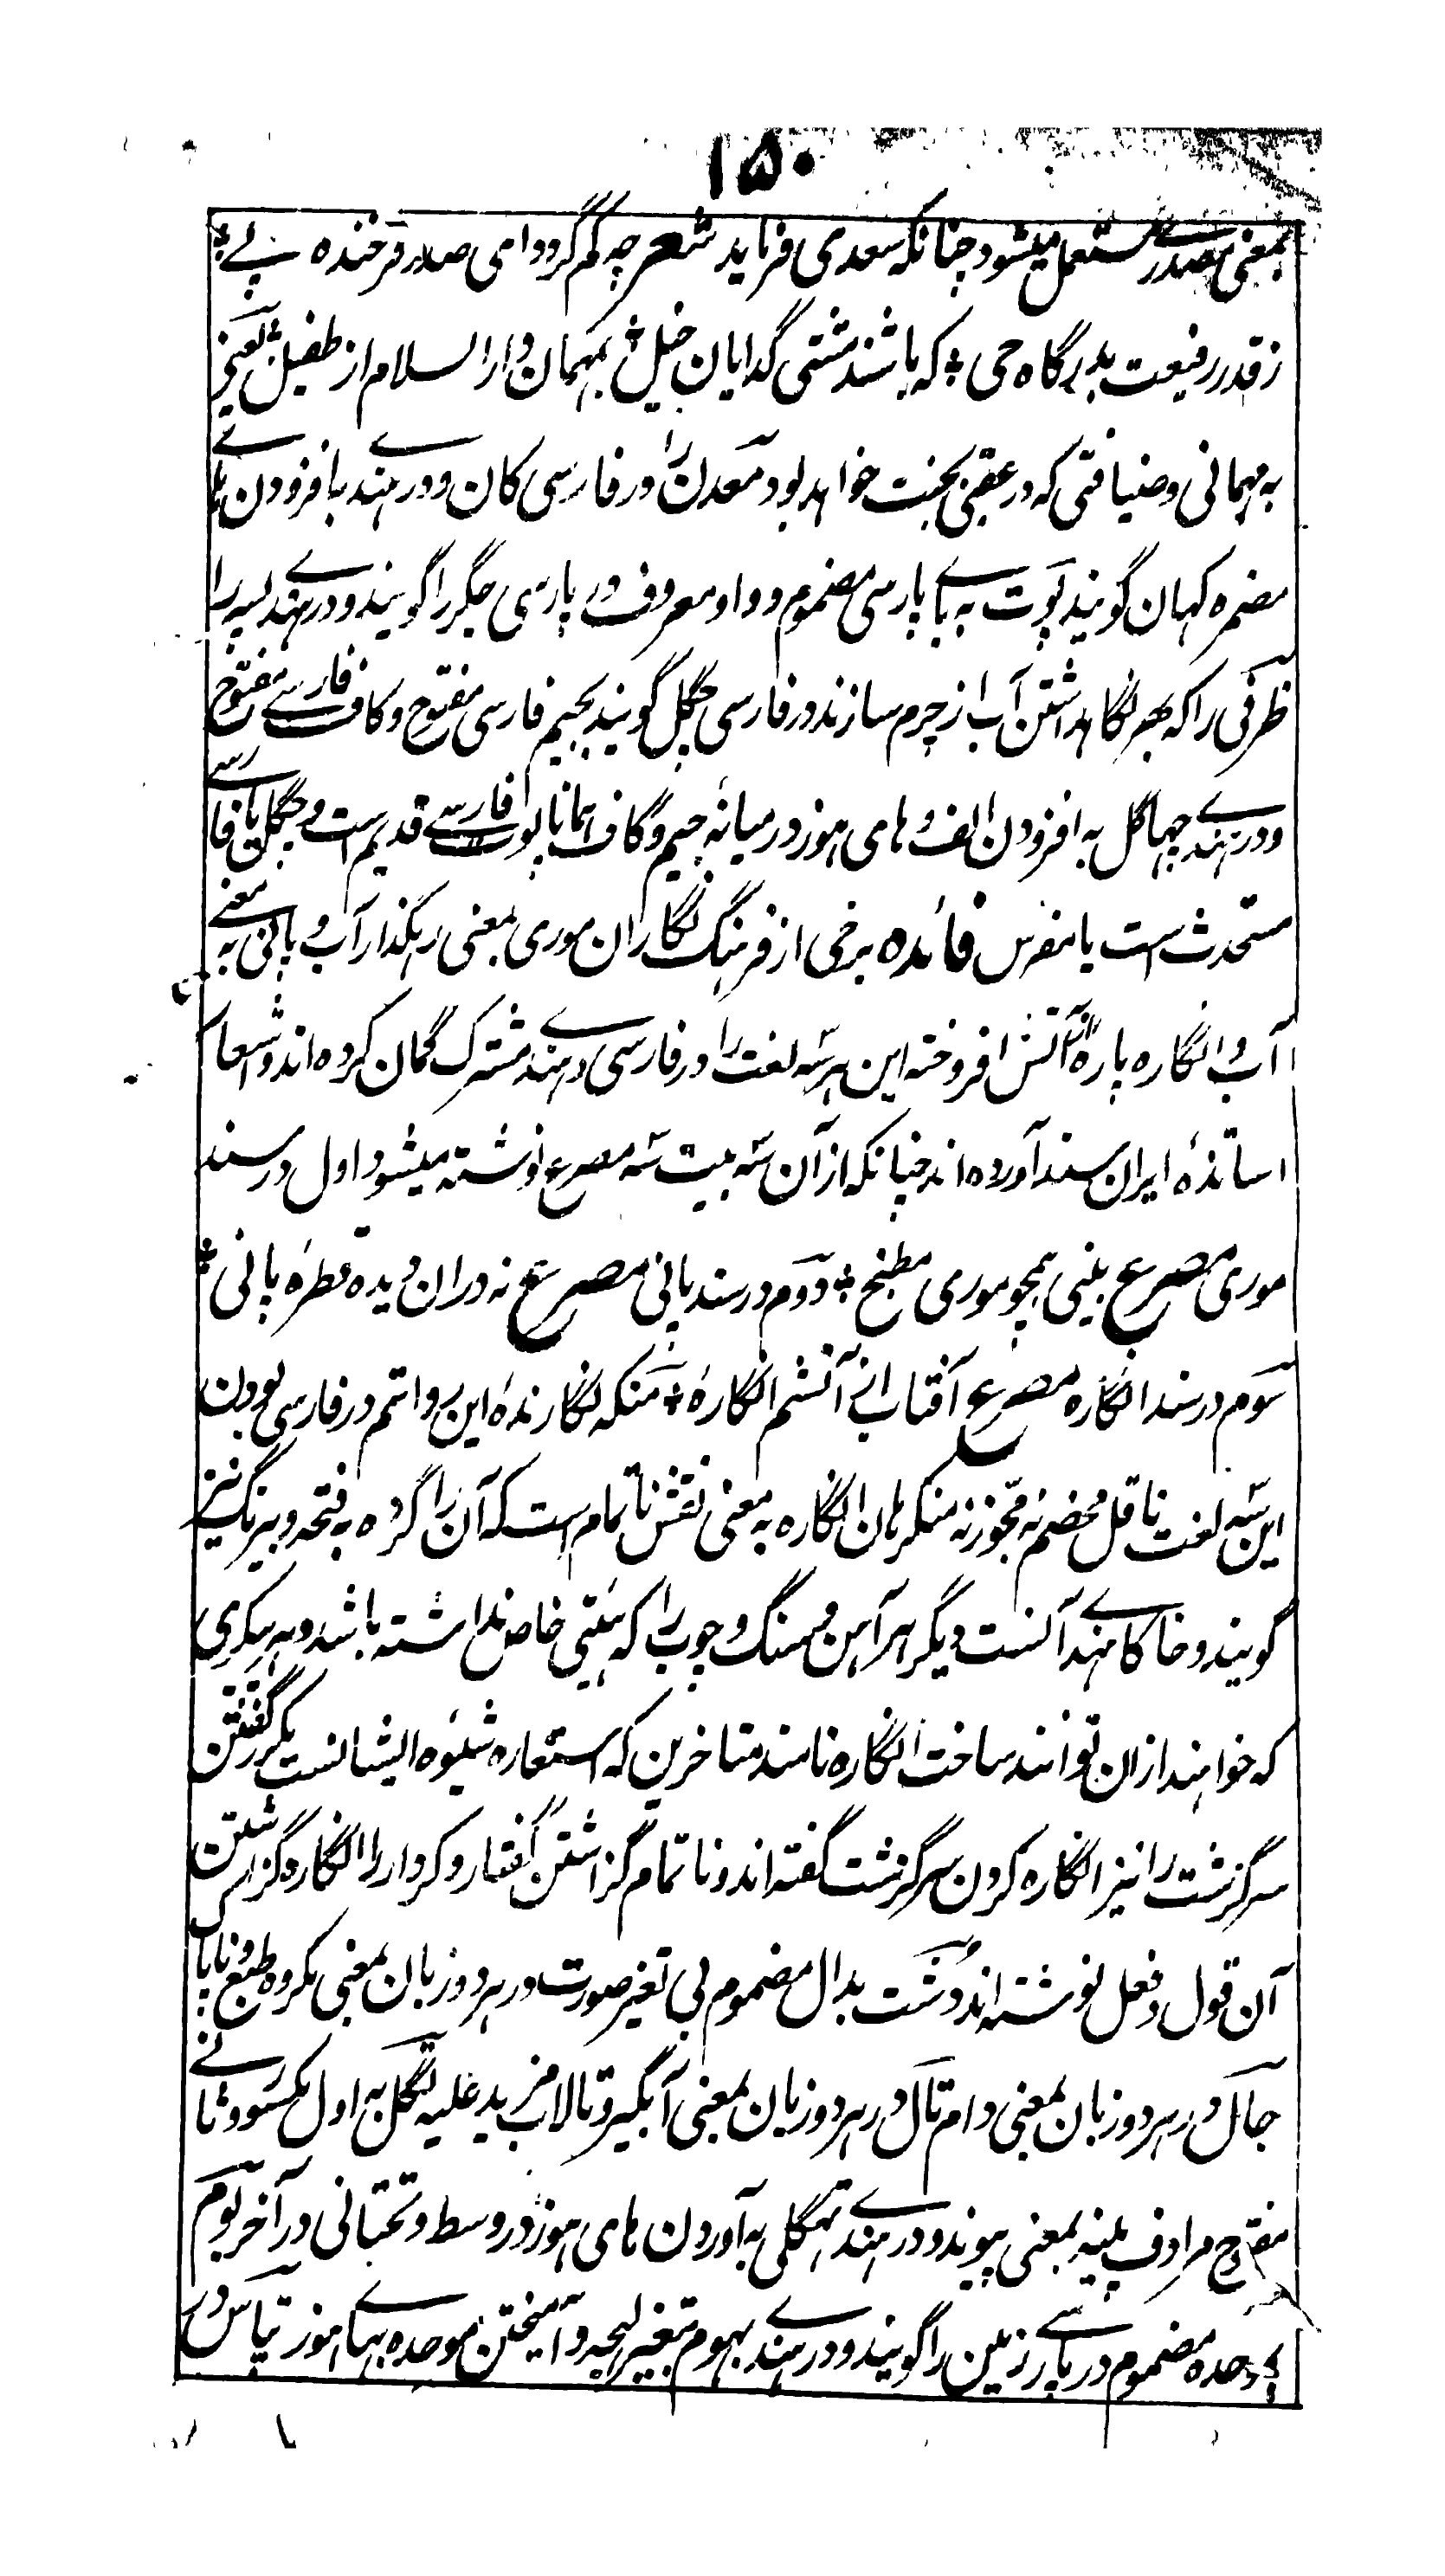 ۱۵۰
بمعنی مصدرے مستعمل میشود چنانکه سعدی فرماید شعر چه کم گردد ای صدر فرخنده پے ؛
ز قدر رفیعت بدرگاه حی ؛ که باشند مشتی گدایان خیل ؛ بمهمان دارالسلام از طفیل ؛ یعنی
به مهمانی وضیافتی که در عقبی بخت خواهد بود معدن را در فارسی کان و در هندے با افزودن ہاے
مضمره کهان گویند پوت به باے پارسی مضموم و واو معروف در پارسی جگر را گویند و در هندے پسر را
ظرفی را که بهر نگاهداشتن آب از چرم سازند در فارسی چگل گویند بجیم فارسی مفتوح و کاف فارسے مفتوح
و در هندے چهاگل به افزودن الف و های هوز در میانهٔ جیم و گاف همانا پوت فارسے قدیم است و چگل یا فارسے
مستحدث ست یا مفرس فائده برخی از فرهنگ نگاران موری بمعنی رهگذار آب و پانی به معنے
آب و انگاره پارهٔ آتش افروخته این هر سه لغت را در فارسی و هندے مشترک گمان کرده اند و اشعار
اساتذهٔ ایران سند آورده اند چنانکه از آن سه بیت سه مصرع نوشته میشود اول در سند
موری مصرع بینی همچو موری مطبخ ؛ دوم در سند پانی مصرع نه در ان دیده قطرهٔ پانی ؛
سوم در سند انگاره مصرع آفتاب از آتشم انگارهٔ ؛ منکه نگارندهٔ این رواتم در فارسی بودن
این سه لغت ناقل محضم نه مجوز نه منکر هان انگاره به معنی نقش ناتمام ست که آن را گرده به فتحه و بیرنگ نیز
گویند و خاکا هندے آنست دیگر هر آهن و سنگ و چوب را که هیئتی خاص نداشته باشد و به پیکری
که خواهند از ان توانند ساخت انگاره نامند متاخرین که استعاره شیوه ایشانست مکرر گفتن
سرگزشت را نیز انگاره کردن سرگزشت گفته اند و ناتمام گزاشتن گفتار و کردار را انگاره گزاشتن
آن قول و فعل نوشته اند دشت بدال مضموم بی تغیر صورت در هر دو زبان بمعنی مکروه طبع و ناپا
جال در هر دو زبان بمعنی دام تال در هر دو زبان بمعنی آبگیر و تالاب مزید علیه تگل به اول مکسور و ثانے
مفتوح مرادف پینه بمعنی پیوند و در هندے تهگلی به آوردن های هوز در وسط و تحتانی در آخر بوم
بموحده مضموم در پارسے زمین را گویند و در هندے بهوم بتغیر لهجه و آمیختن موحده بهاے هوز تپاس در